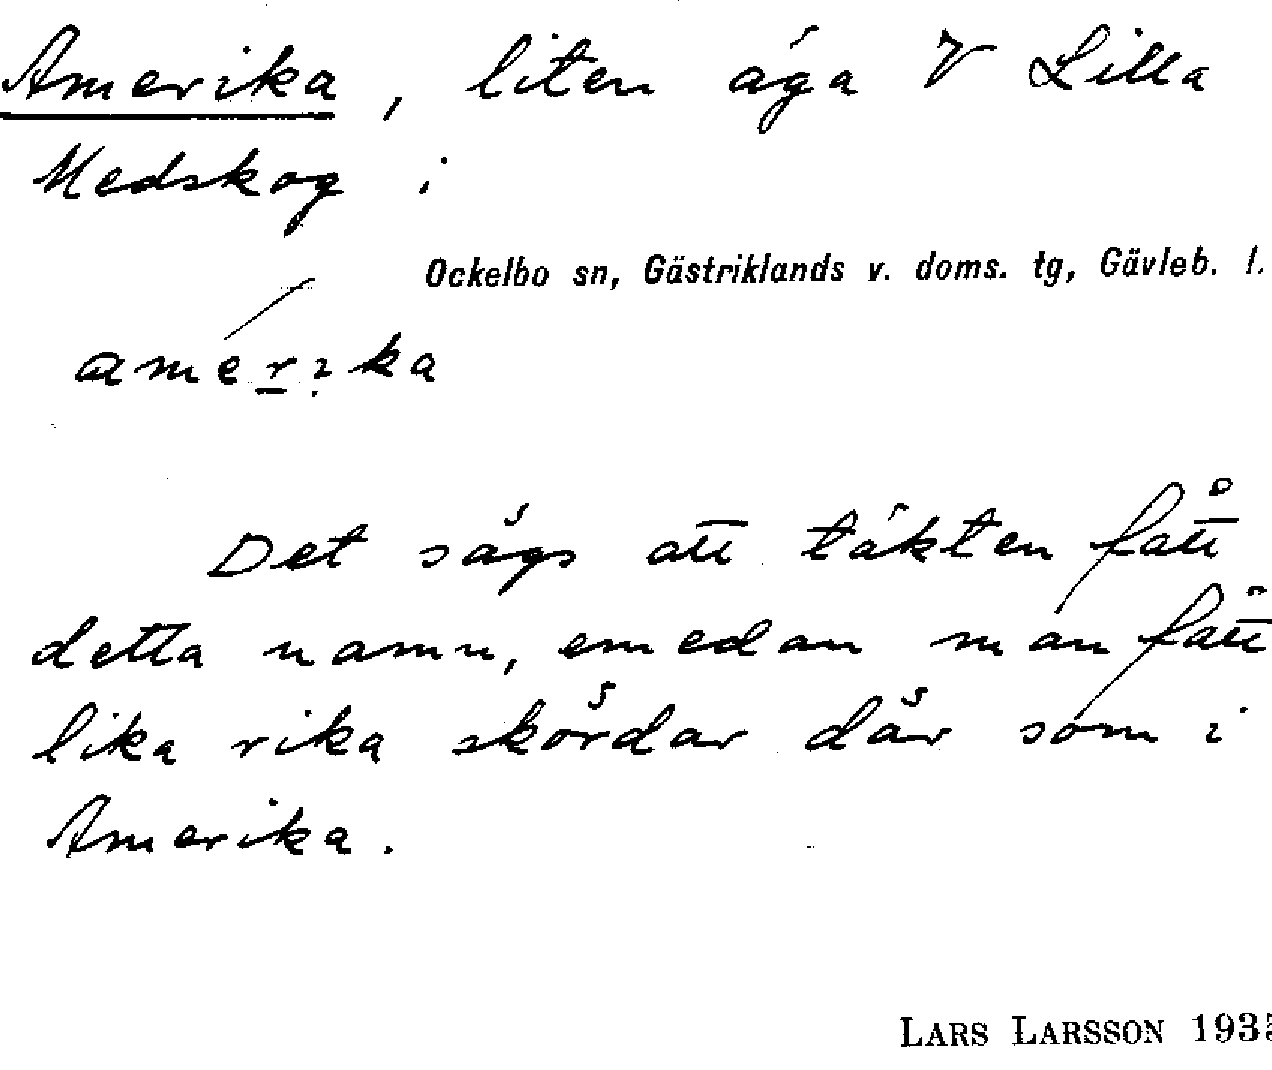 Amerika, liten äga V Lilla
Medskog i
Ockelbo sn, Gästriklands v. doms. tg, Gävleb. l.
amérika
Det sägs att täkten fått
detta namn, emedan man fått
lika rika skördar där som i
Amerika.
LARS LARSSON